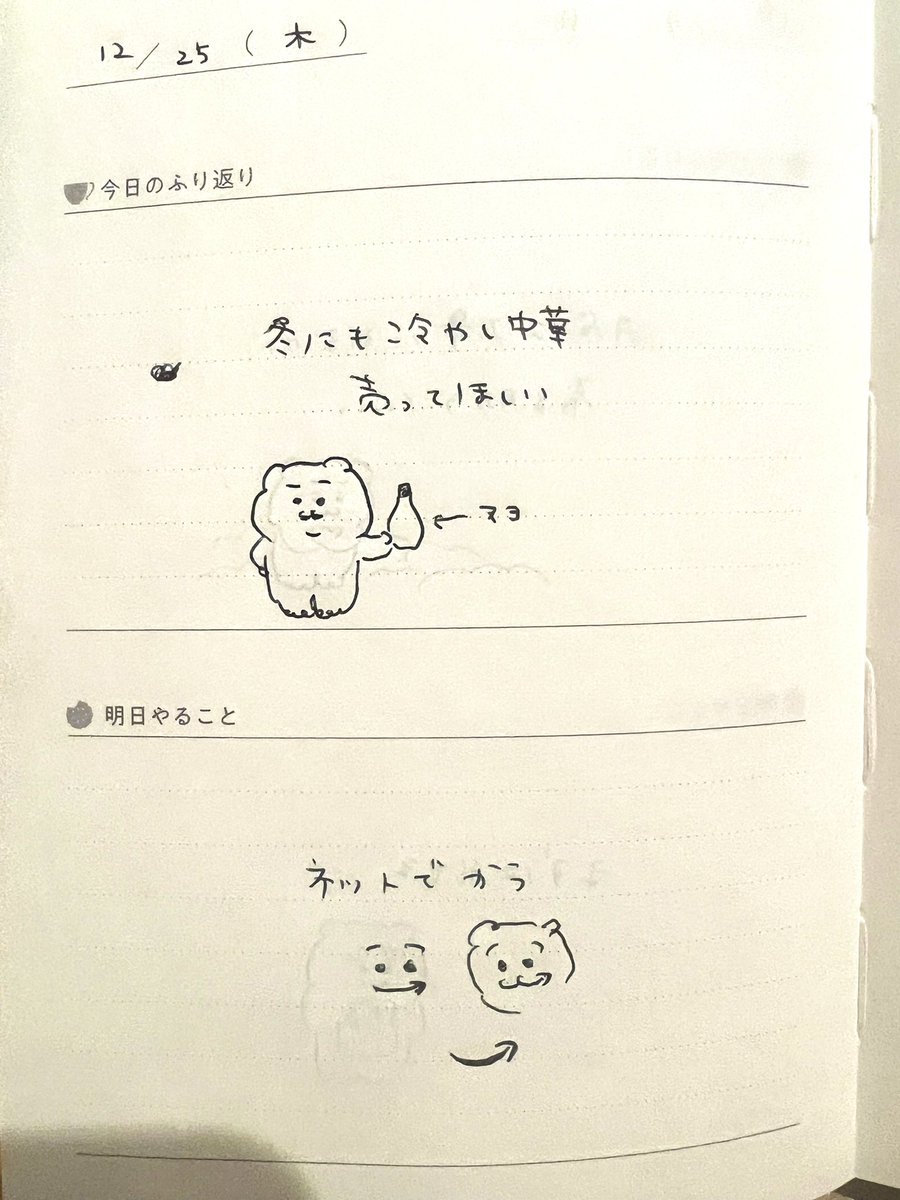 12/25(木)
今日のふり返り
冬にもこ冷やし中華
売ってほしい
←マヨ
明日やること
ネットでかう